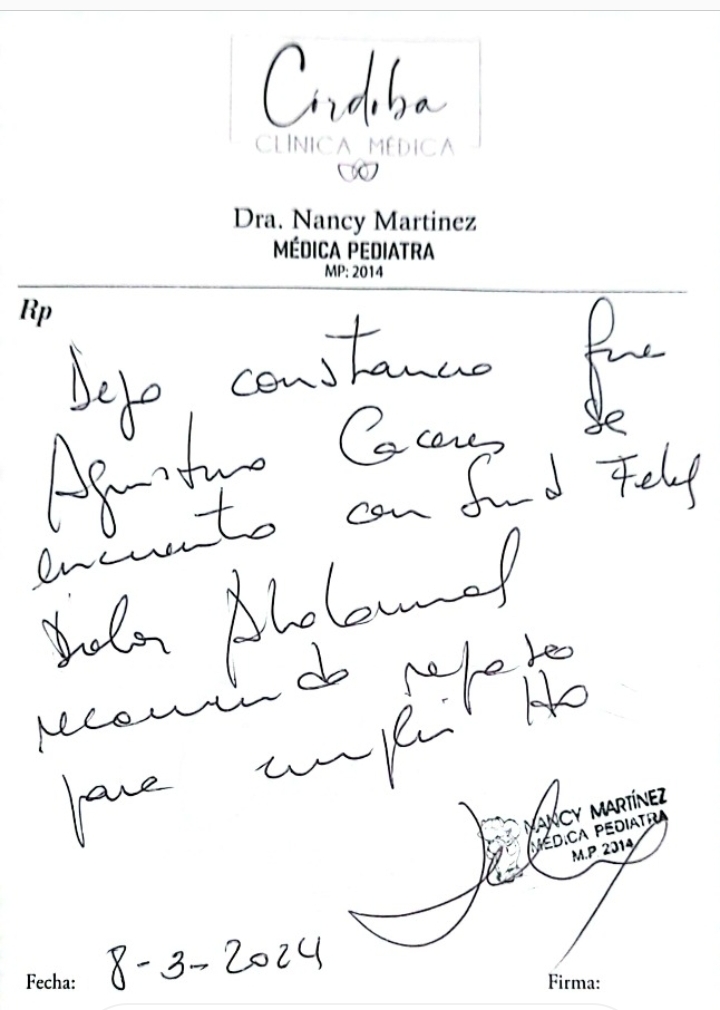 Córdoba
CLÍNICA MÉDICA
Dra. Nancy Martinez
MÉDICA PEDIATRA
MP: 2014
Rp
Dejo constancia que
Agustina Caceres se
encuentra con Sind Febril
Dolor Abdominal
recomiendo reposo
para cumplir tto
NANCY MARTÍNEZ
MÉDICA PEDIATRA
M.P 2014
Fecha: 8-3-2024
Firma: